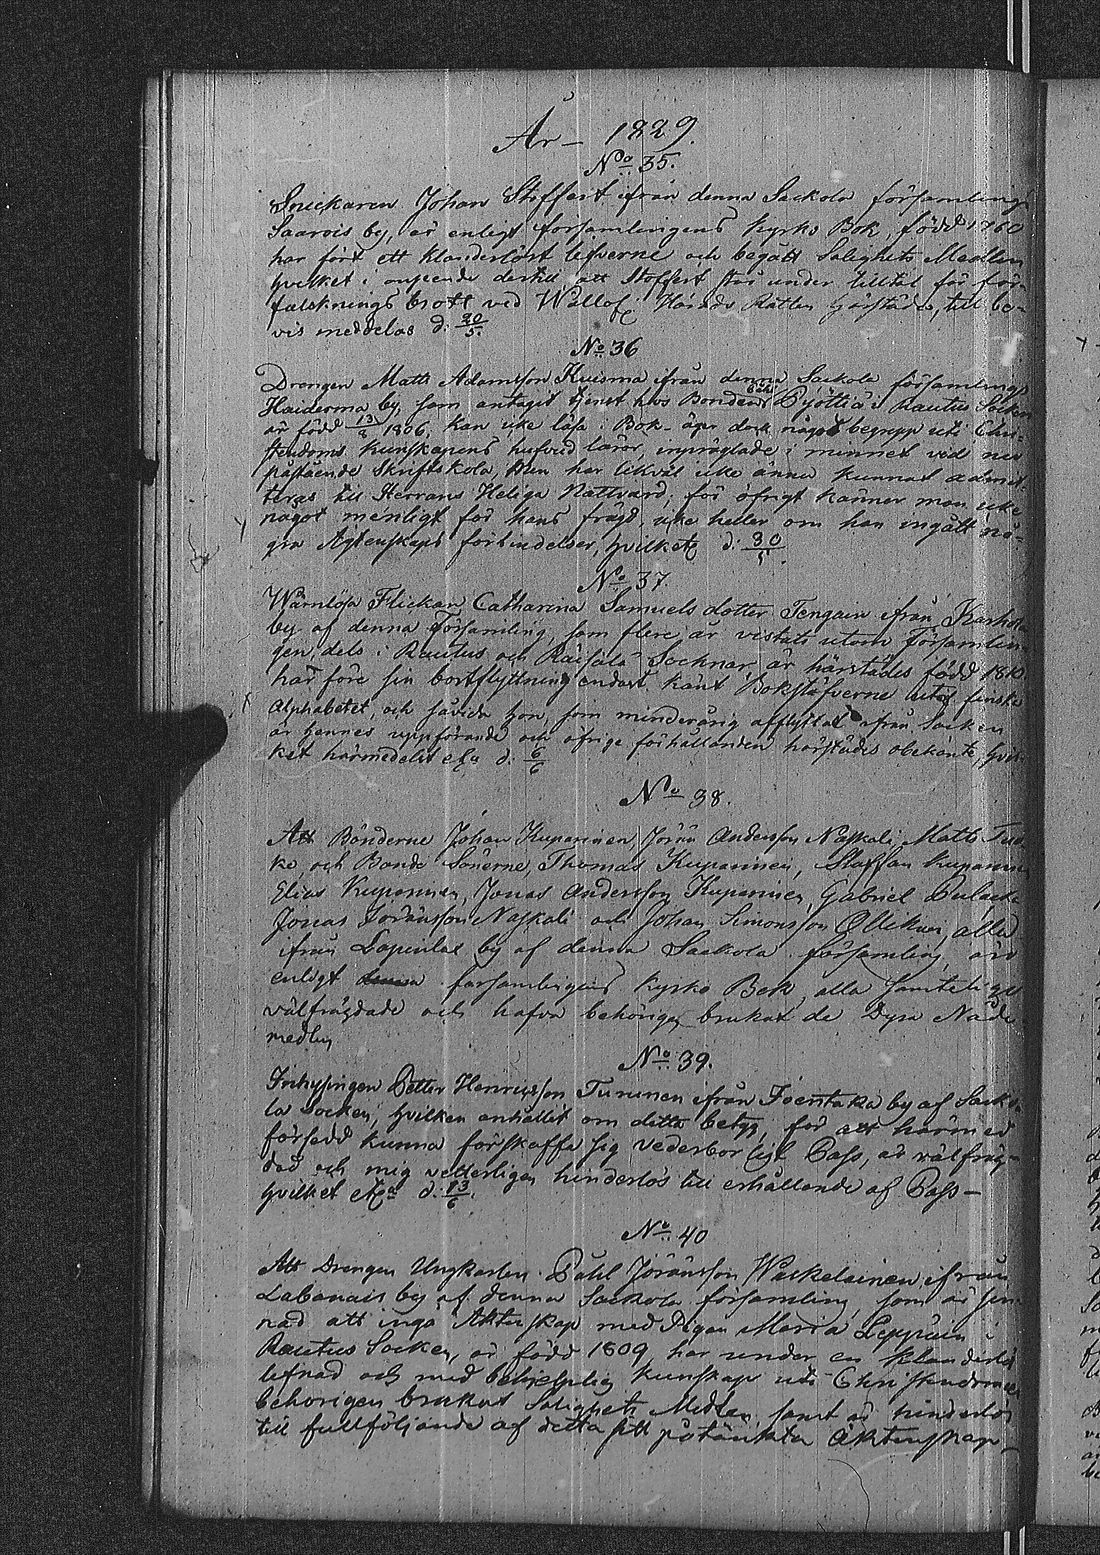 År – 1829.
No 35.
Snickaren Johan Stoffert ifrån denna Sackola församlings
Saarois by, är enligt församlingens Kyrko Bok, född 1760
har fört ett klanderlöst lefverne och begått Salighets Medlen
hvilket i anseende dertill att Stoffert står under tilltal för för-
falsknings brott ved Wällofl. Härads Rätten härstädes, till be-
vis meddelas d: 30/5.
No 36
Drengen Matts Adamsson Kuisma ifrån denna Sackola församlings
Haiderma by, som antagit tjenst hos Bonden Pyöttiä i Rautus Socken
är född 13/2 1806. kan icke läsa i Bok – äger dock något begrepp uti Chri-
stendoms kunskapens hufvud läror, inpräglade i minnet vid
påstående Skriftskola, Men har likväl icke ännu kunnat admit-
teras till Herrans Heliga Nattvard, för öfrigt känner man icke
något menligt för hans frägd, icke heller om han ingått nå-
gra Ägtenskaps förbindelser, hvilket d: 30/5
No 37.
Wärnlösa Flickan Catharina Samuels dotter Tengain ifrån
by af denna Församling, som flere år vistats utom Församlin-
gen, dels i Rautus och Räisälä Socknar är härstädes född 1810.
har före sin bortflyttning endast känt Bokstäfverne utaf finska
Alphabetet, och såvida hon, som minderårig afflyttat ifrån Socken
är hennes uppförande och öfrige förhållanden härstädes obekante, hvil-
ket härmedelst etc d: 6/6
No 38.
Att Bönderne Johan Kuparinen, Jöran Andersson Naskali, Matts
ke, och Bonde Sönerne, Thomas Kuparinen, Staffan Kuparinen
Elias Kuparinen, Jonas Andersson Kuparinen, Gabriel Pulacka
Jonas Joransson Naskali och Johan Simonsson Ollikain, alla
ifrån Lapinlax by af denna Sackola församling äro
enligt församlingens Kyrko Bok, alla samteligen
välfrägdade och hafva behörigen brukat de Dyra Nåde
medlen
No 39.
Inhysingen Petter Henricsson Tuninen ifrån Joentaka by af Sacko-
la Socken, hvilken anhållit om detta betyg för att härmed
försedd kunna förskaffa sig vederbörligt Pass, är välfräg-
dad och mig vetterligen hinderlös till erhållande af Pass –
hvilket etc d: 13/6.
No 40
Att Drengen Ungkarlen Påhl Jöransson Waskelainen ifrån
Labanais by af denna Sackola församling, som är sin-
nad att ingå Äktenskap med Pigan Maria Leppäin i
Rautus Socken, är född 1809 har under en klanderlös
lefnad och med behjelplig kunskap uti Christendomen
behörigen brukat Salighets Medlen, samt är hinderlös
till fullföljande af detta sitt påtänkta äktenskap –